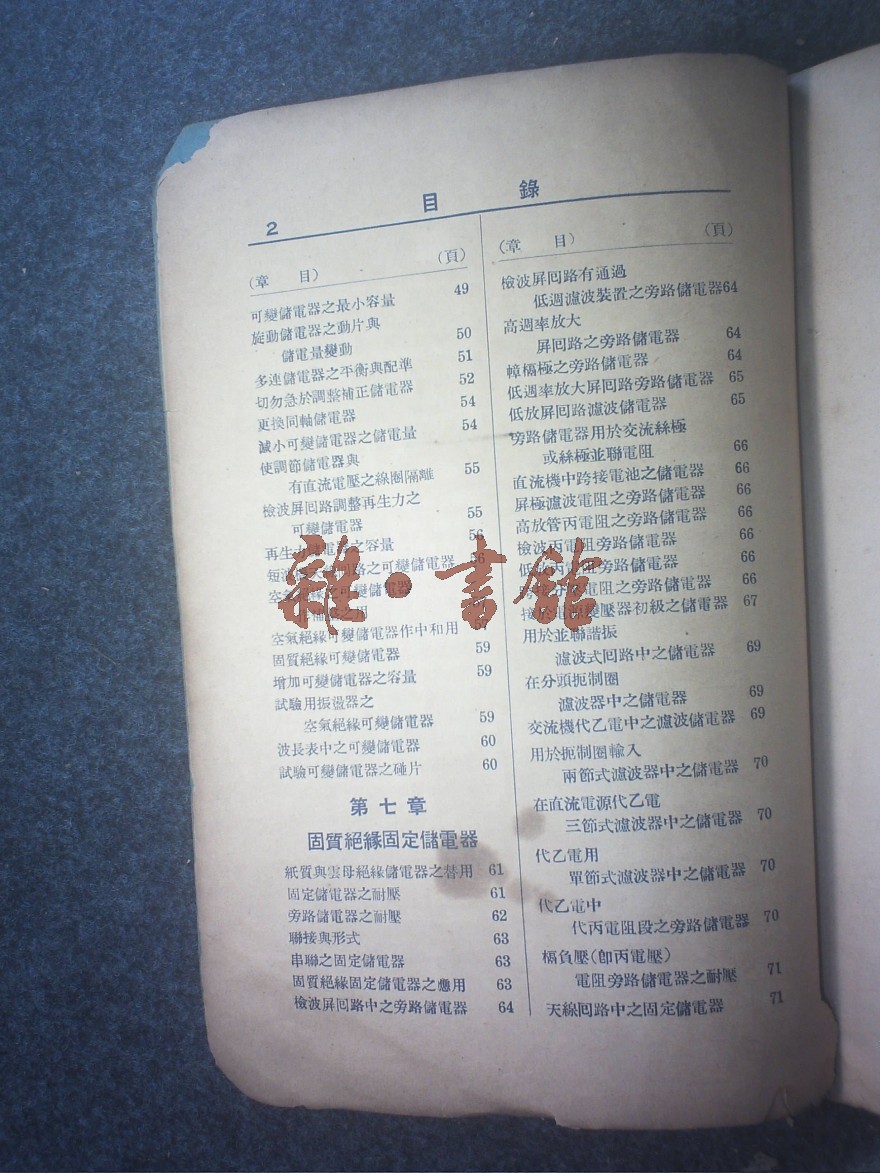 2
目 錄
（章 目） （頁）
可變儲電器之最小容量 49
旋動儲電器之動片與
儲電量變動 50
多連儲電器之平衡與配準 51
切勿急於調整補正儲電器 52
更換同軸儲電器 54
減小可變儲電器之儲電量 54
使調節儲電器與
有直流電壓之線圈隔離 55
檢波屏回路調整再生力之
可變儲電器 55
再生力儲電器之容量 56
短波 路之可變儲電器 56
空氣絕緣之可變儲電器
空氣絕緣可變儲電器作中和用 57
固質絕緣可變儲電器 59
增加可變儲電器之容量 59
試驗用振盪器之
空氣絕緣可變儲電器 59
波長表中之可變儲電器 60
試驗可變儲電器之碰片 60
第七章
固質絕緣固定儲電器
紙質與雲母絕緣儲電器之替用 61
固定儲電器之耐壓 61
旁路儲電器之耐壓 62
聯接與形式 63
串聯之固定儲電器 63
固質絕緣固定儲電器之應用 63
檢波屏回路中之旁路儲電器 64
（章 目） （頁）
檢波屏回路有通過
低週濾波裝置之旁路儲電器64
高週率放大
屏回路之旁路儲電器 64
幛槅極之旁路儲電器 64
低週率放大屏回路旁路儲電器 65
低放屏回路濾波儲電器 65
旁路儲電器用於交流絲極
或絲極並聯電阻 66
直流機中跨接電池之儲電器 66
屏極濾波電阻之旁路儲電器 66
高放管丙電阻之旁路儲電器 66
檢波丙電阻旁路儲電器 66
低放丙電阻旁路儲電器 66
電阻之旁路儲電器 66
接於電源變壓器初級之儲電器 67
用於並聯諧振
濾波式回路中之儲電器 69
在分頭扼制圈
濾波器中之儲電器 69
交流機代乙電中之濾波儲電器 69
用於扼制圈輸入
兩節式濾波器中之儲電器 70
在直流電源代乙電
三節式濾波器中之儲電器 70
代乙電用
單節式濾波器中之儲電器 70
代乙電中
代丙電阻段之旁路儲電器 70
槅負壓（卽丙電壓）
電阻旁路儲電器之耐壓 71
天線回路中之固定儲電器 71
雜·書館